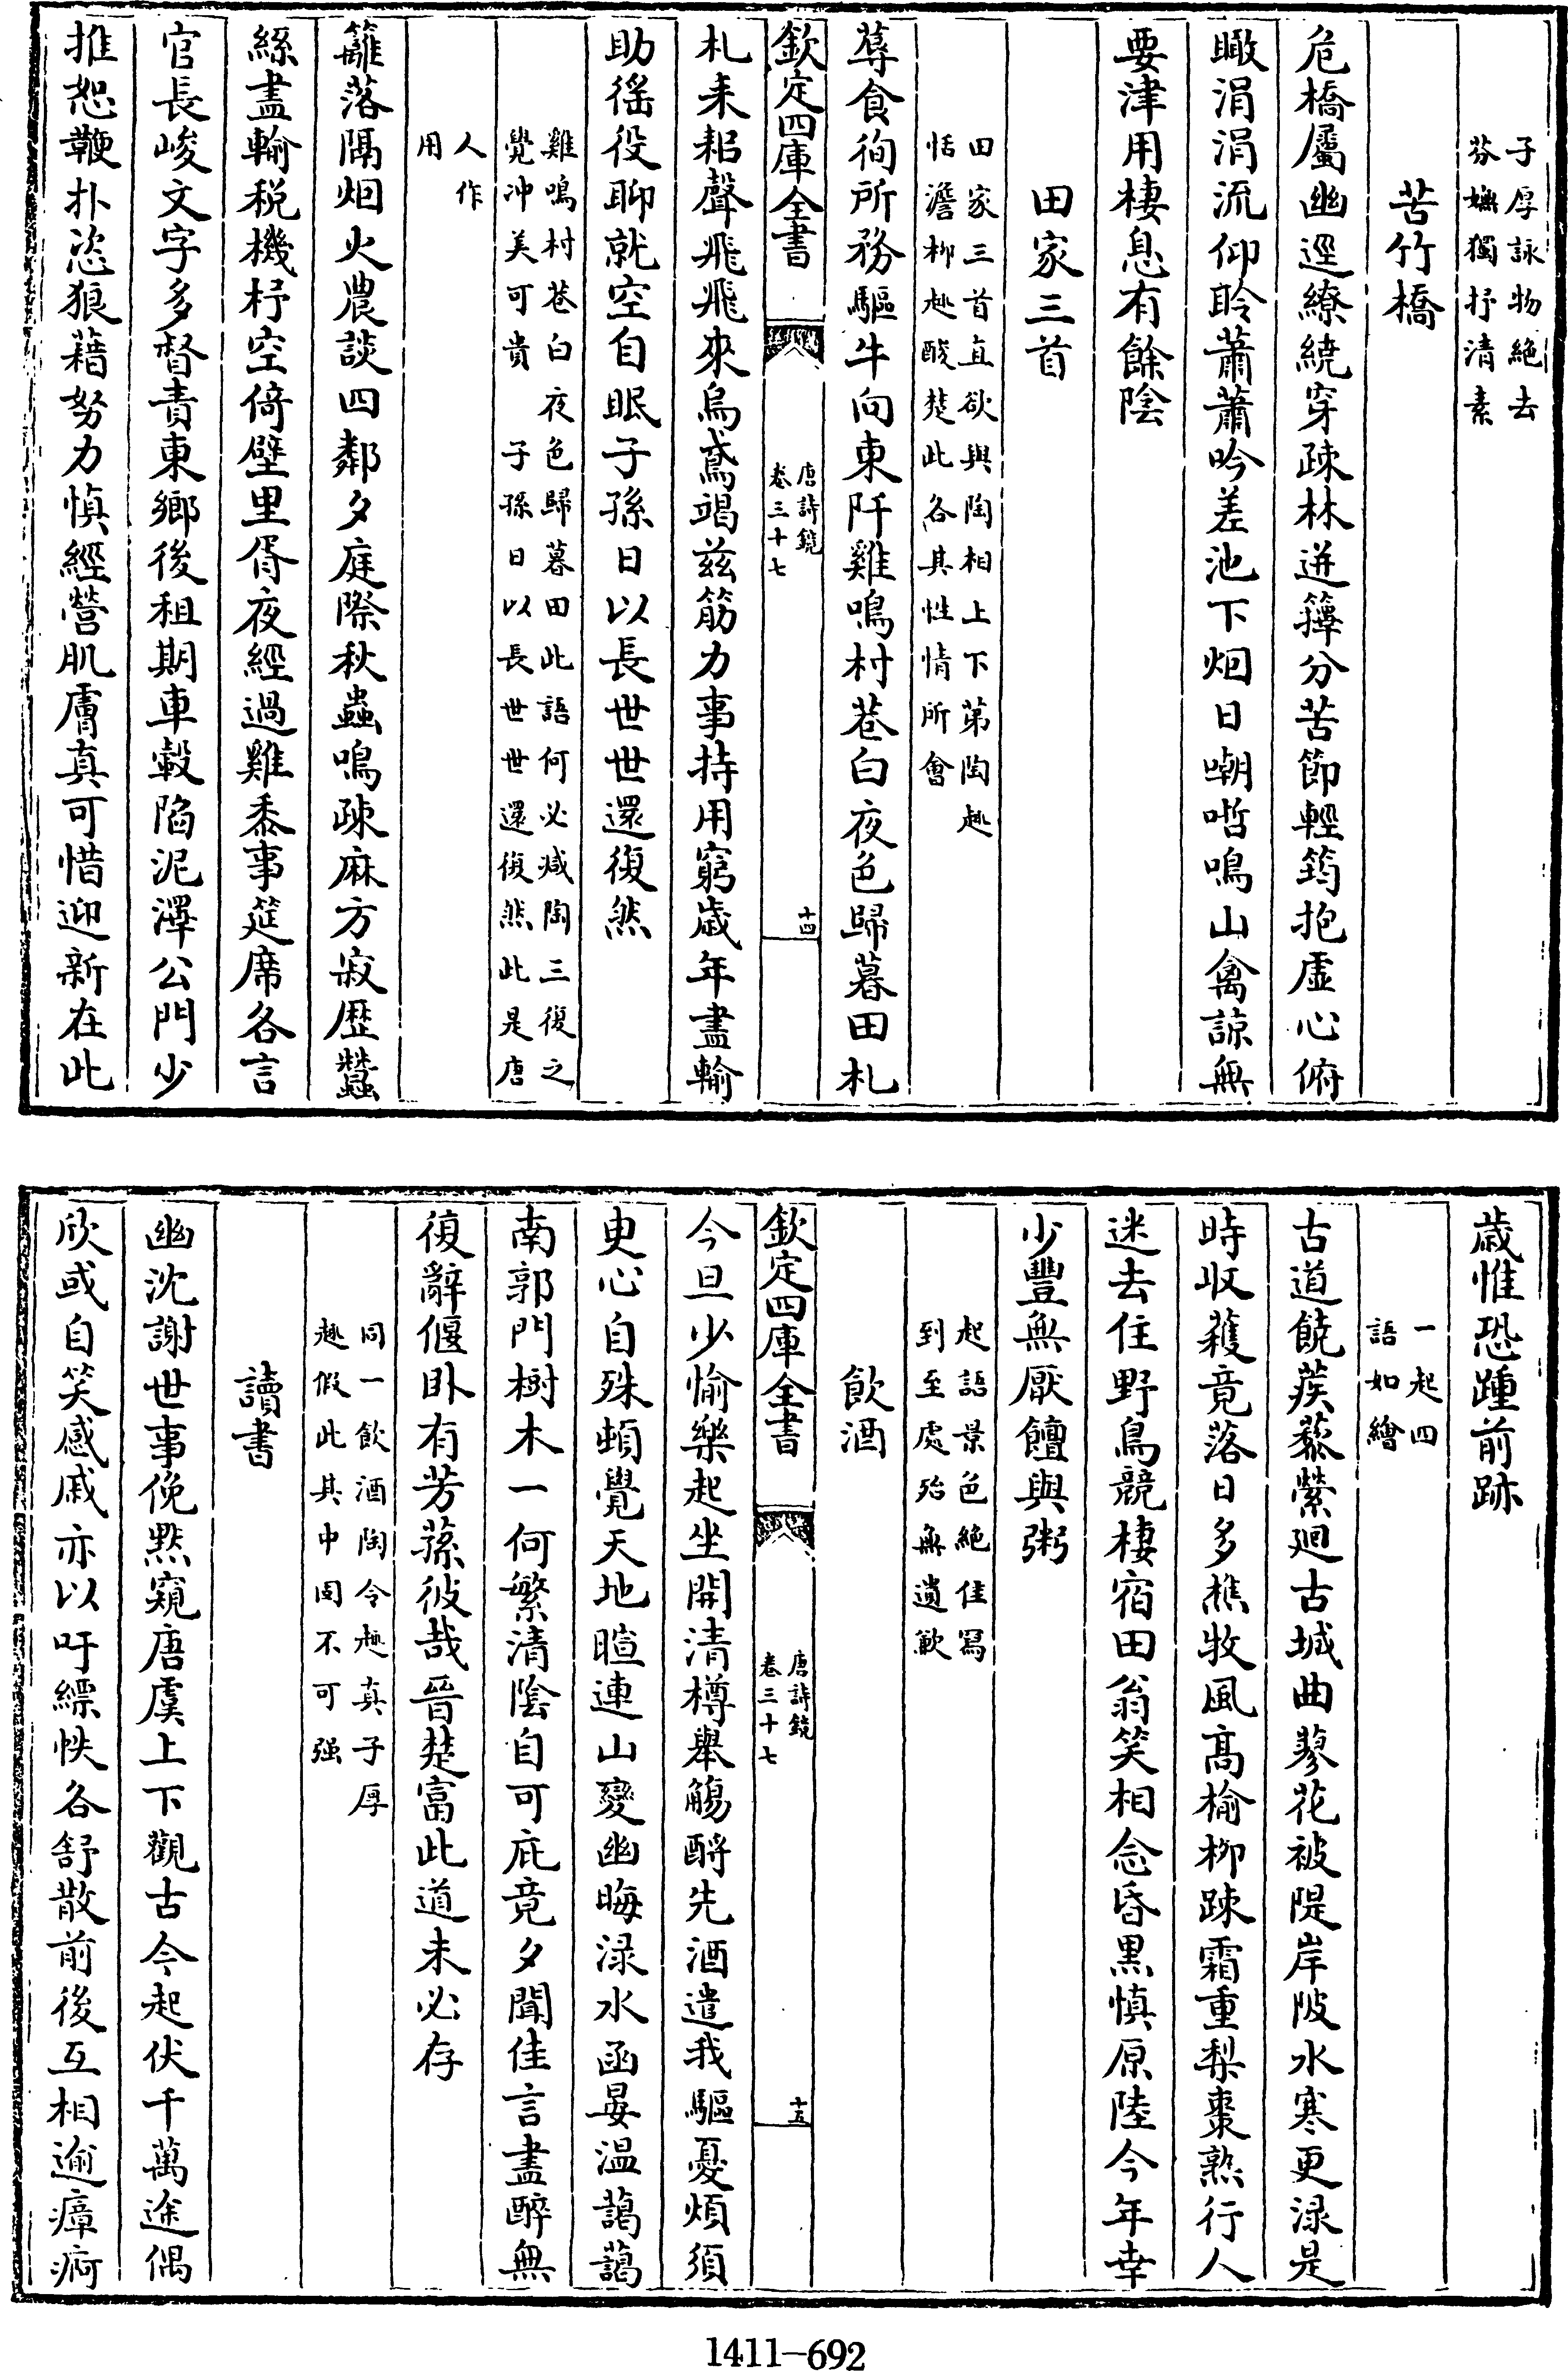 子厚詠物絶去
芬嫵獨抒清素
苦竹橋
危橋屬幽逕繚繞穿疎林迸籜分苦節輕筠抱虛心俯
瞰涓涓流仰聆蕭蕭吟差池下烟日嘲哳鳴山禽諒無
要津用棲息有餘陰
田家三首
田家三首直欲與陶相上下第陶趣
恬澹柳趣酸楚此各其性情所會
蓐食徇所務驅牛向東阡雞鳴村巷白夜色歸暮田札
欽定四庫全書
唐詩鏡
卷三十七
十四
札耒耜聲飛飛來烏鳶竭兹筋力事持用窮歲年盡輸
助徭役聊就空自眠子孫日以長世世還復然
雞鳴村巷白夜色歸暮田此語何必减陶三復之
覺冲美可貴 子孫日以長世世還復然此是唐
人作
用
籬落隔烟火農談四鄰夕庭際秋蟲鳴疎麻方寂歴蠶
絲盡輸税機杼空倚壁里胥夜經過雞黍事筵席各言
官長峻文字多督責東鄉後租期車轂陷泥澤公門少
推恕鞭扑恣狼藉努力慎經營肌膚真可惜迎新在此
歲惟恐踵前跡
一起四
語如繪
古道饒蒺藜縈廻古城曲蓼花被隄岸陂水寒更渌是
時收穫竟落日多樵牧風髙榆柳踈霜重梨棗熟行人
迷去住野鳥競棲宿田翁笑相念昏黑慎原陸今年幸
少豐無厭饘與粥
起語景色絶佳冩
到至處殆無遺歉
飲酒
欽定四庫全書
唐詩鏡
卷三十七
十五
今旦少愉樂起坐開清樽舉觴酹先酒遣我驅憂煩須
臾心自殊頓覺天地暄連山變幽晦渌水函晏温藹藹
南郭門樹木一何繁清陰自可庇竟夕聞佳言盡醉無
復辭偃卧有芳蓀彼哉晉楚富此道未必存
同一飲酒陶令趣真子厚
趣假此其中固不可强
讀書
幽沈謝世事俛黙窺唐虞上下觀古今起伏千萬途偶
欣或自笑感戚亦以吁縹帙各舒散前後互相逾瘴痾
1411—692